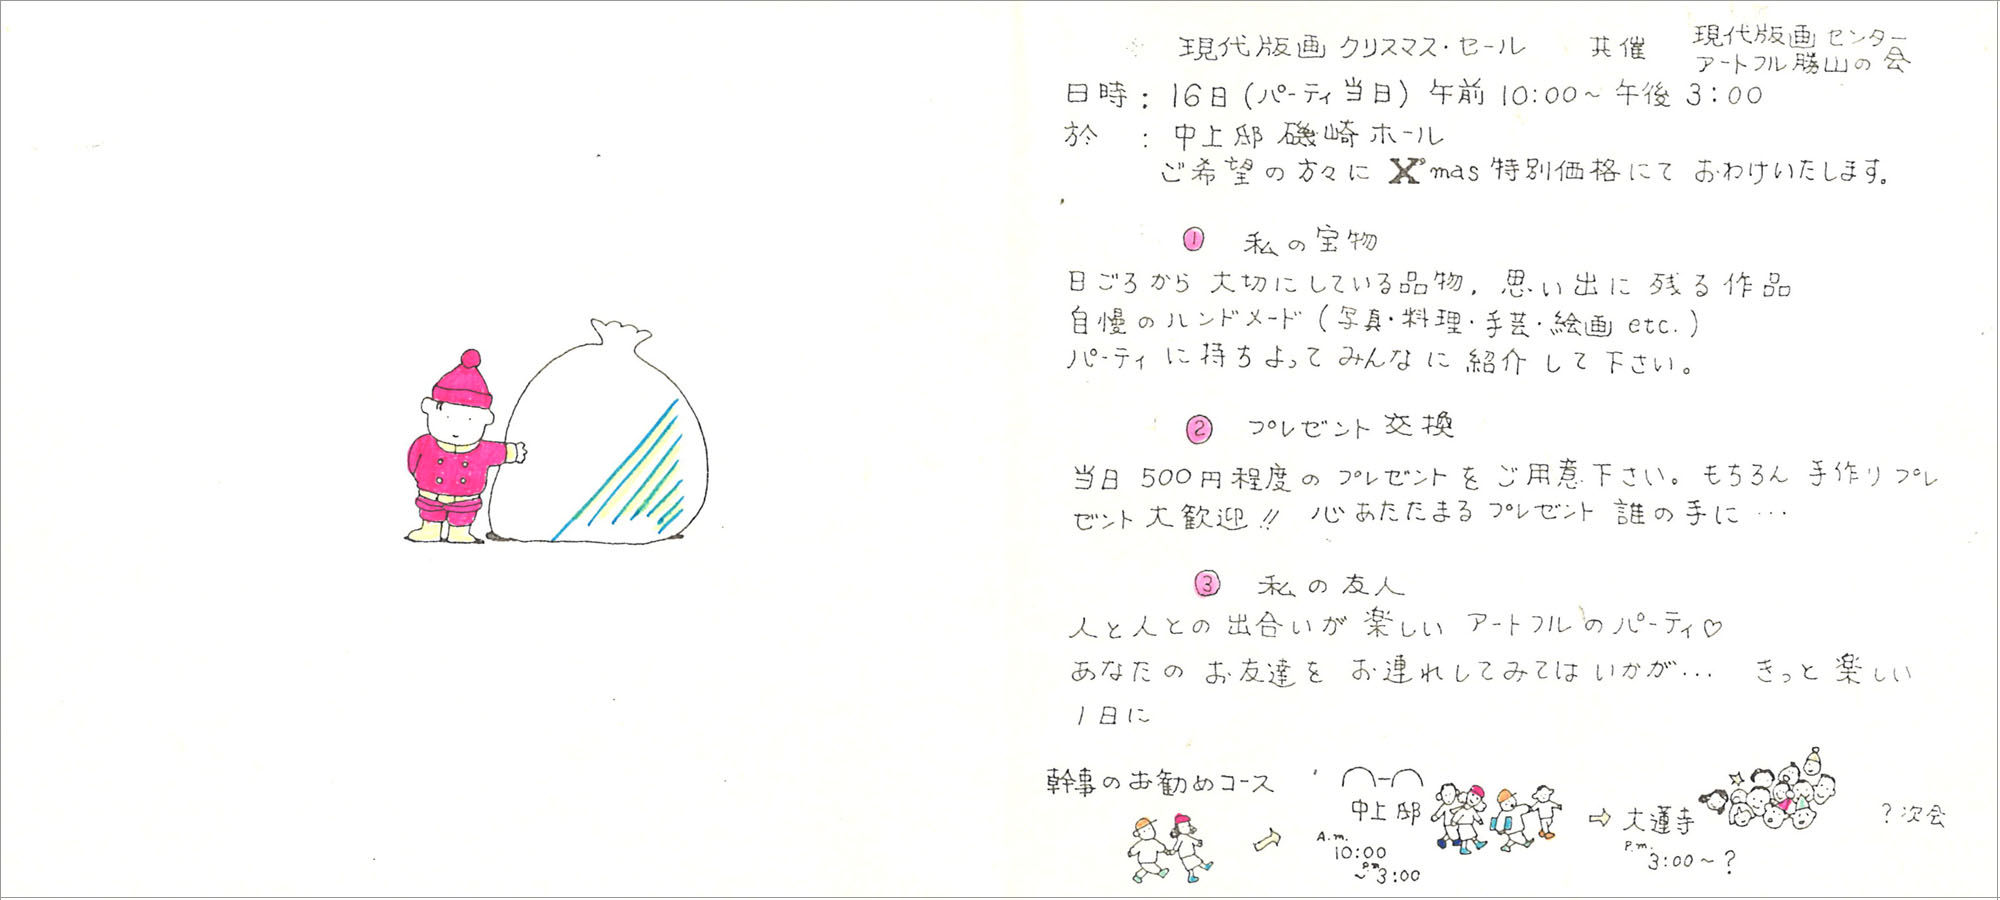 現代版画 クリスマス・セール 共催 現代版画センター
アートフル勝山の会
日時: 16日(パーティ当日) 午前 10:00~午後 3:00
於 : 中上邸 磯崎ホール
ご希望の方々に X'mas 特別価格にて おわけいたします。
① 私の宝物
日ごろから 大切にしている品物, 思い出に 残る作品
自慢のハンドメード (写真・料理・手芸・絵画 etc.)
パーティに持ちよって みんなに 紹介して下さい。
② プレゼント 交換
当日 500円程度の プレゼントを ご用意下さい。もちろん 手作りプレ
ゼント大歓迎!! 心あたたまるプレゼント 誰の手に…
③ 私の友人
人と人との 出合いが 楽しい アートフルのパーティ♡
あなたの お友達を お連れしてみては いかが… きっと楽しい
1日に
幹事のお勧めコース
中上邸
A.m. 10:00
P.m. ~3:00
⇨ 大蓮寺
P.m. 3:00~?
?次会